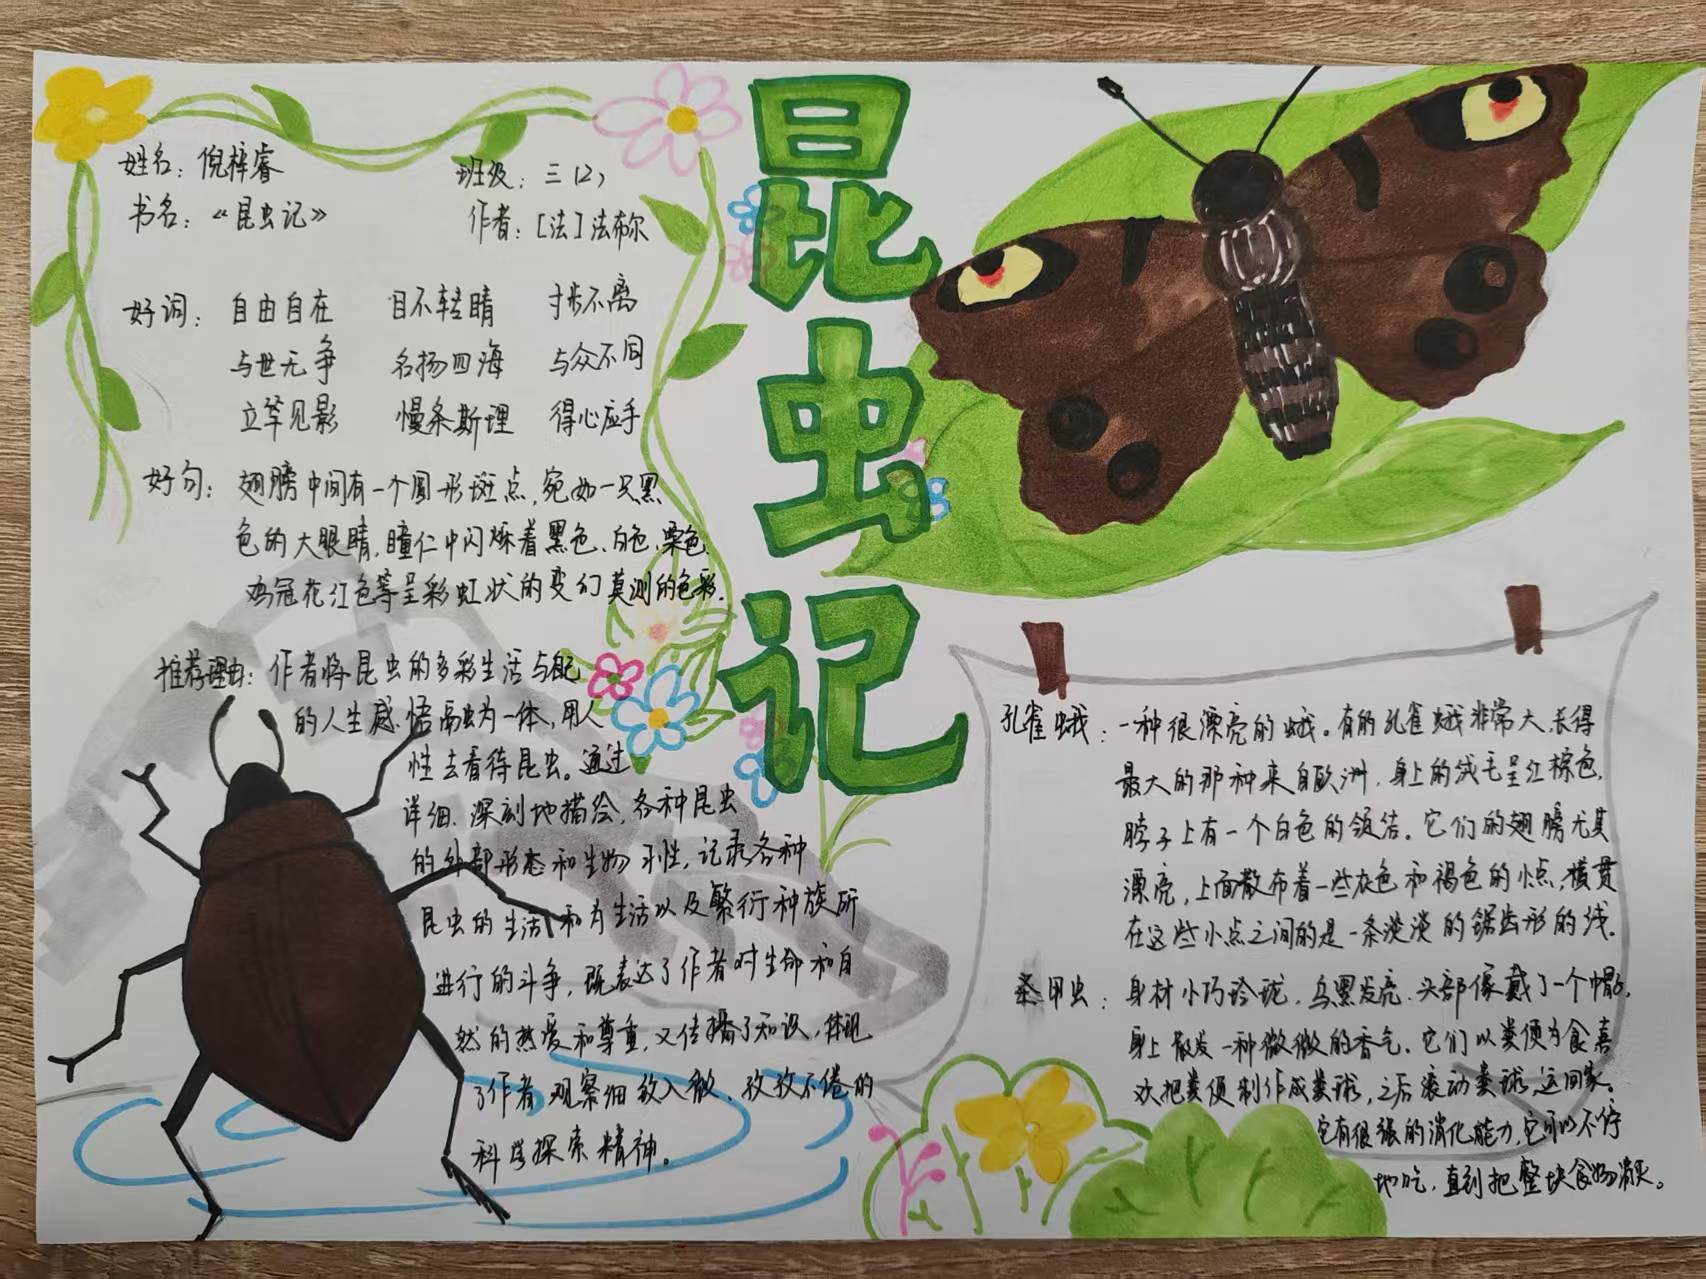 昆虫记
姓名：倪梓睿 班级：三（2）
书名：《昆虫记》 作者：［法］法布尔
好词：自由自在 目不转睛 寸步不离
与世无争 名扬四海 与众不同
立竿见影 慢条斯理 得心应手
好句：翅膀中间有一个圆形斑点，宛如一只黑
色的大眼睛，瞳仁中闪烁着黑色、白色、栗色、
鸡冠花红色等呈彩虹状的变幻莫测的色彩。
推荐理由：作者将昆虫的多彩生活与自己
的人生感悟融为一体，用人
性去看待昆虫。通过
详细、深刻地描绘，各种昆虫
的外部形态和生物习性，记录各种
昆虫的生活和为生活以及繁衍种族所
进行的斗争，既表达了作者对生命和自
然的热爱和尊重，又传播了知识，体现
了作者观察细致入微、孜孜不倦的
科学探索精神。
孔雀蛾：一种很漂亮的蛾。有的孔雀蛾非常大，长得
最大的那种来自欧洲，身上的绒毛呈红棕色，
脖子上有一个白色的领结。它们的翅膀尤其
漂亮，上面散布着一些灰色和褐色的小点，横贯
在这些小点之间的是一条淡淡的锯齿形的线。
甲虫：身材小巧玲珑，乌黑发亮，头部像戴了一个帽，
身上散发一种微微的香气，它们以粪便为食喜
欢把粪便制作成粪球，之后滚动粪球运回家。
它有很强的消化能力，它可以不停
地吃，直到把整块食物消灭。